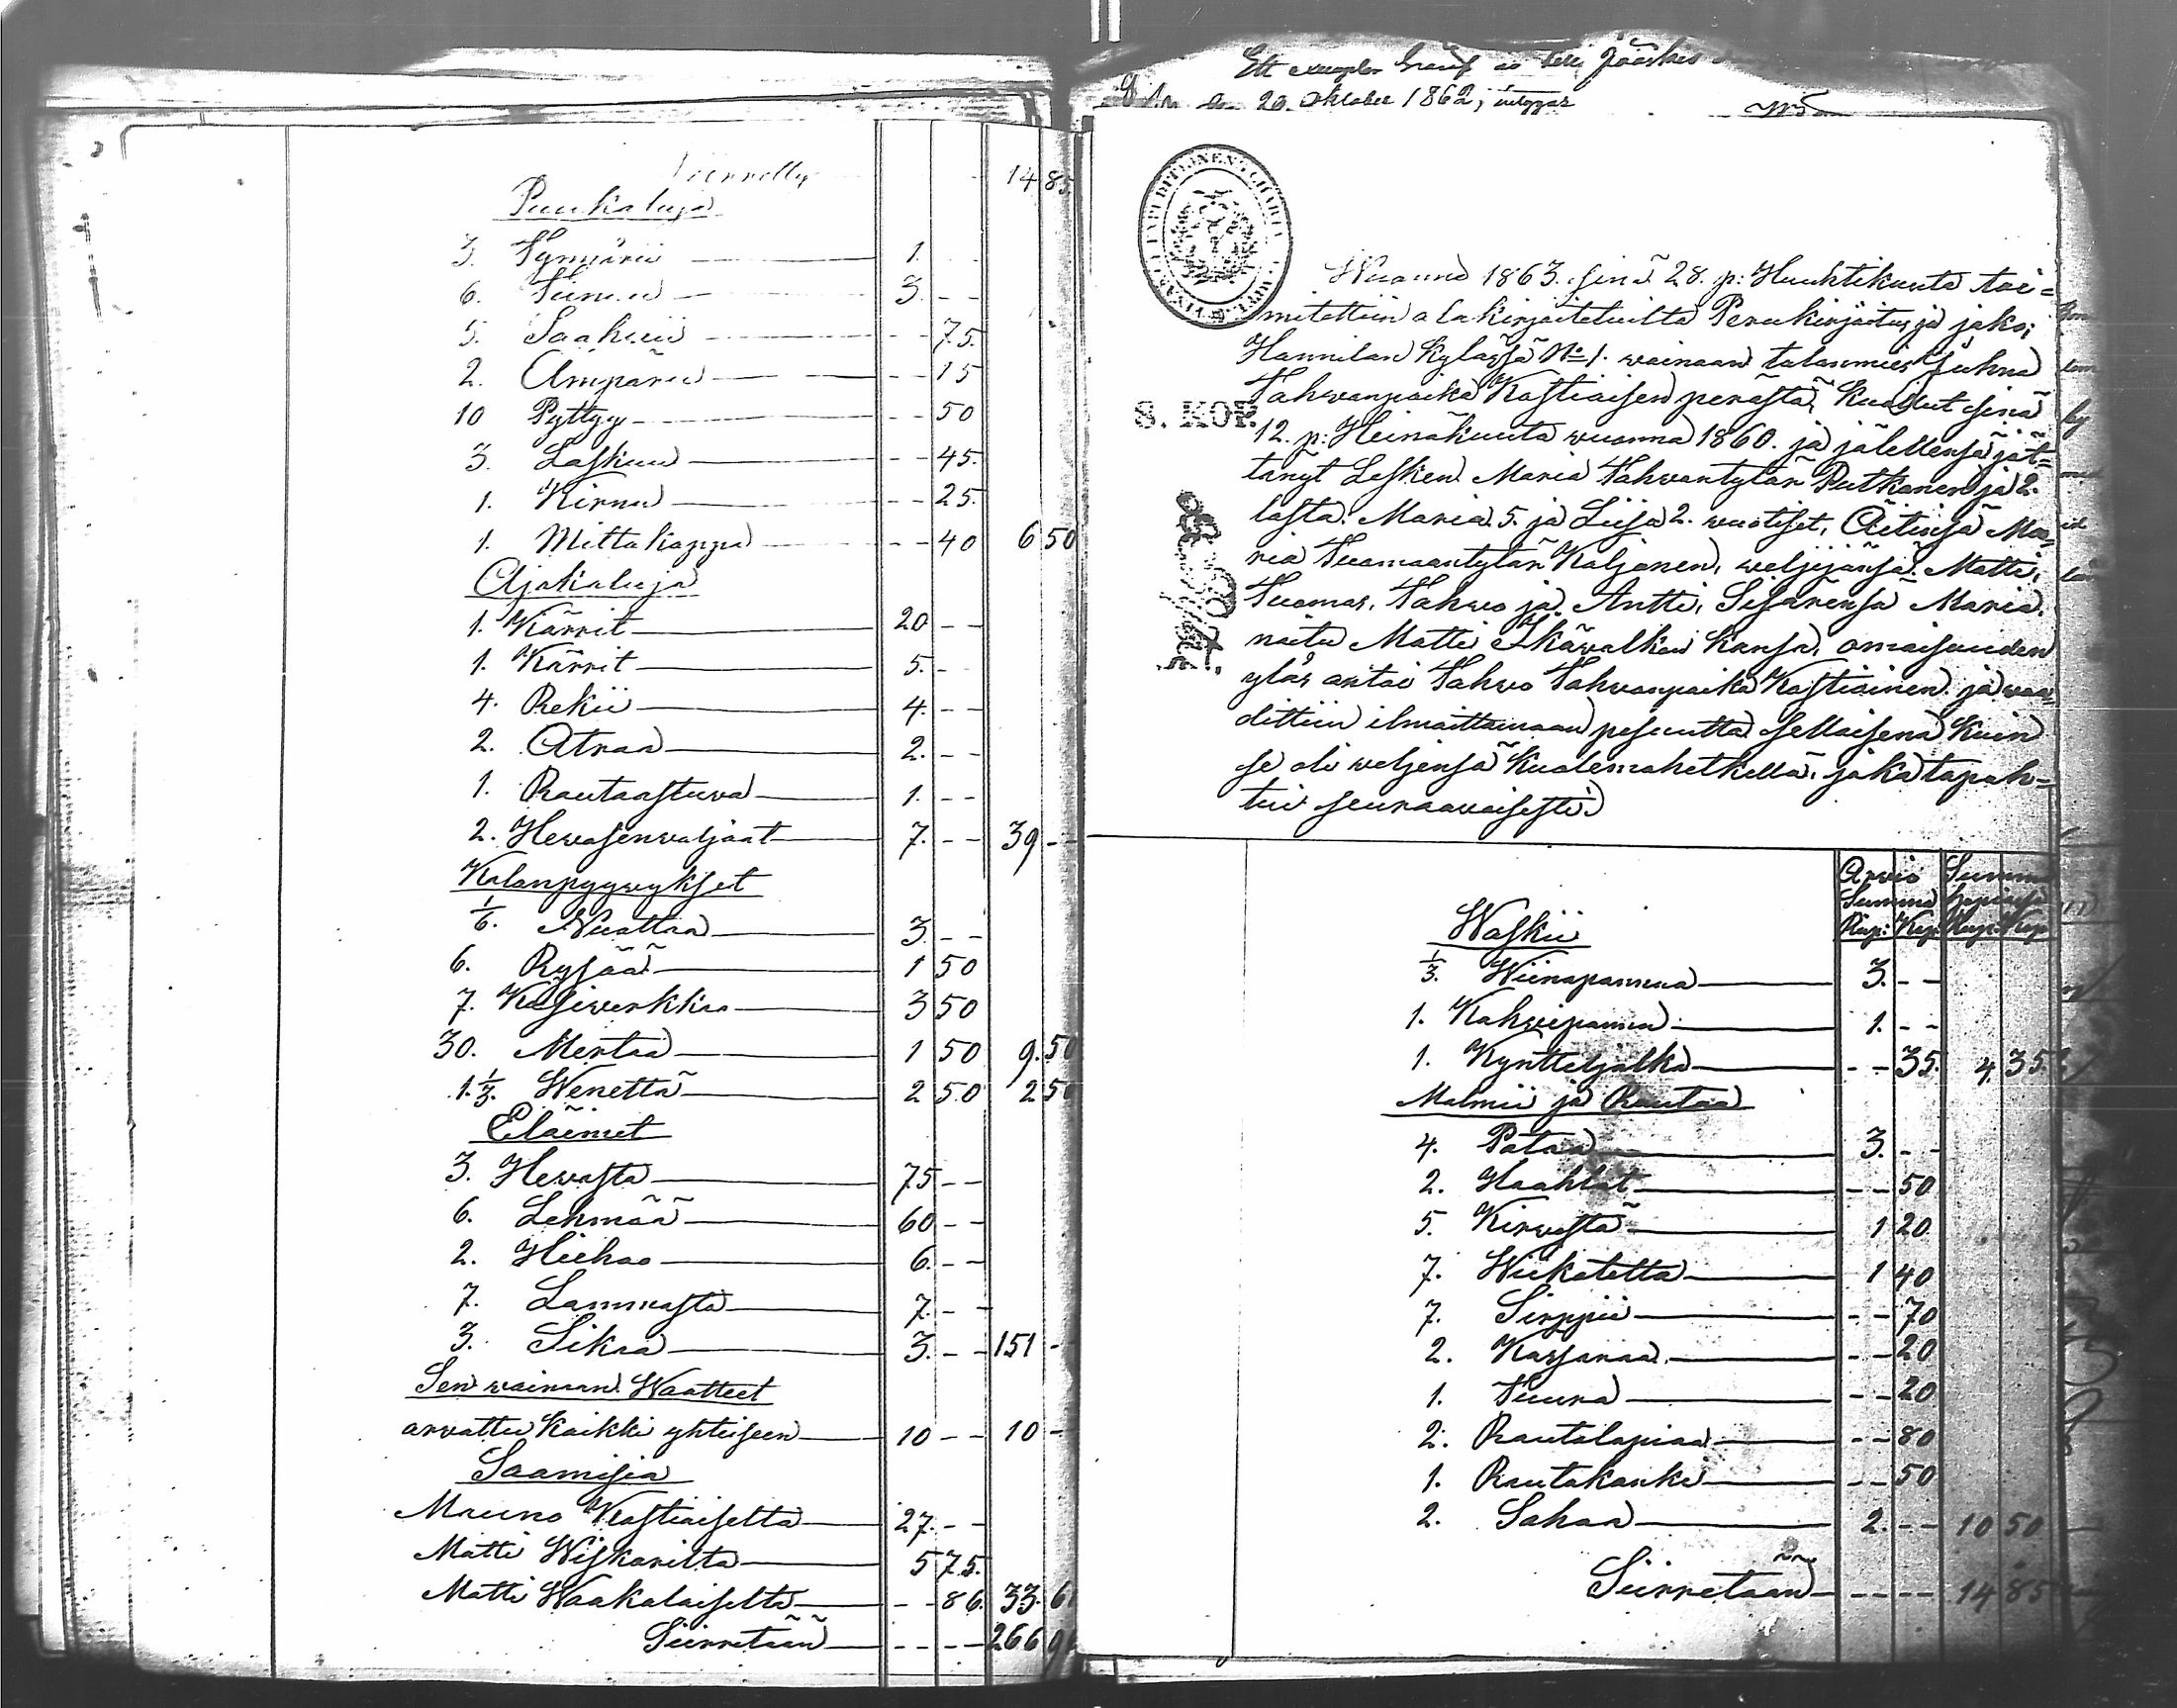 Siirretty 14 85
Puukaluja
3. Tynnörii 1.
6. Tiinuu 3. - -
5. Saahvii - - 75.
2. Ämpäriä - - 15
10 Pyttyy - - 50
3. Laskuu - - 45.
1. Kirnu - - 25.
1. Mittakappa - - 40 6 50
Ajokaluja
1. Kärrit 20 - -
1. Kärrit 5. -
4. Rekii 4. - -
2. Atraa 2. - -
1. Rautaastuwa 1. - -
2. Hewosenwaljaat 7. - - 39 - -
Kalanpyywykset
1/6. Nuottaa 3. - -
6. Rysää 1 50
7. Käsiwerkkoa 3 50
30. Mertaa 1 50 9. 50
1. 1/3. Wenettä 2 50 2 50
Eläimet
3. Hewosta 75 - -
6. Lehmää 60 - -
2. Hiehoo 6. - -
7. Lammasta 7. - -
3. Sikaa 3. - - 151 -
Sen wainaan Waatteet
arwattu kaikki yhteiseen 10 - - 10 -
Saamisia
Mauno Kostiaiselta 27. - -
Matti Wiskarilta 5 75.
Matti Waakalaiselta - - 86. 33. 61
Siirretään - - - - 266 96
Ett exemplar häraf
den 20. Oktober 1862, intygar
Wuonna 1863. sinä 28. p: Huuhtikuuta toi=
mitettiin alakirjoiteluilta Perukirjoitus ja jako;
Hannilan Kylässä No 1. wainaan talonmies Juhna
8. KOP.
Tahwanpoika Kostiaisen perästä, kuollut sinä
12. p: Heinäkuuta wuonna 1860. ja jälellensä jät=
tänyt Lesken Maria Tahwantytär Putkonen ja 2.
lasta. Maria 5. ja Liisa 2. wuotiset, Äitinsä Ma=
ria Tuomaantytär Kaljonen, weljijänsä Matti,
Tuomas, Tahwo ja Antti, Sisärensä Maria,
naitu Matti Ikäwalkon kansa, omaisuuden
ylös antoi Tahwo Tahwanpoika Kostiainen ja waa=
dittiin ilmoittamaan pesuutta sellaisena kuin
se oli weljensä kuolemahetkellä, joka tapah=
tui seuraawaisesti
Arwio Summa
Summa hopiassa
Rup: Kop. Rup: Kop
Waskii
1/3. Wiinapannua 3. - -
1. Kahwipannu 1. - -
1. Kynttiljalka - - 35. 4. 35.
Malmii ja Rautaa
4. Pataa 3. - -
2. Haahlat - - 50
5. Kirwestä 1 20
7. Wiikatetta 1 40
7. Sirppii - - 70
2. Kassaraa - - 20
1. Tuura - - 20
2. Rautalapiaa - - 80
1. Rautakanki - - 50
2. Sahaa 2. - - 10 50
Siirretään - - - - 14 85